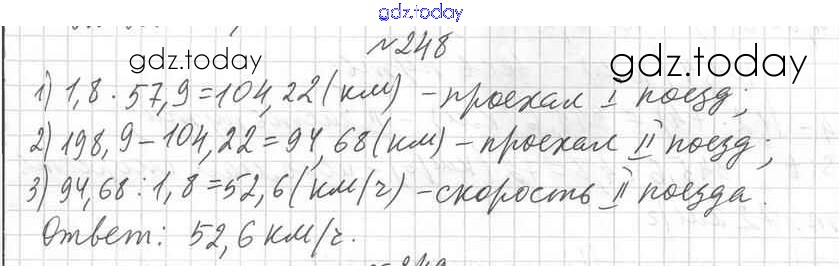 gdz.today
№248
gdz.today
gdz.today
1) 1,8 · 57,9 = 104,22 (км) – проехал I поезд;
2) 198,9 – 104,22 = 94,68 (км) – проехал II поезд;
3) 94,68 : 1,8 = 52,6 (км/ч) – скорость II поезда.
Ответ: 52,6 км/ч.